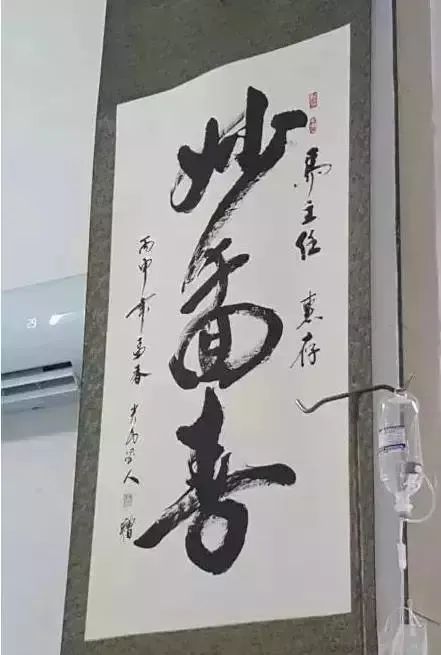 馬主任 惠存
妙手回春
丙申年孟春 人 赠
29